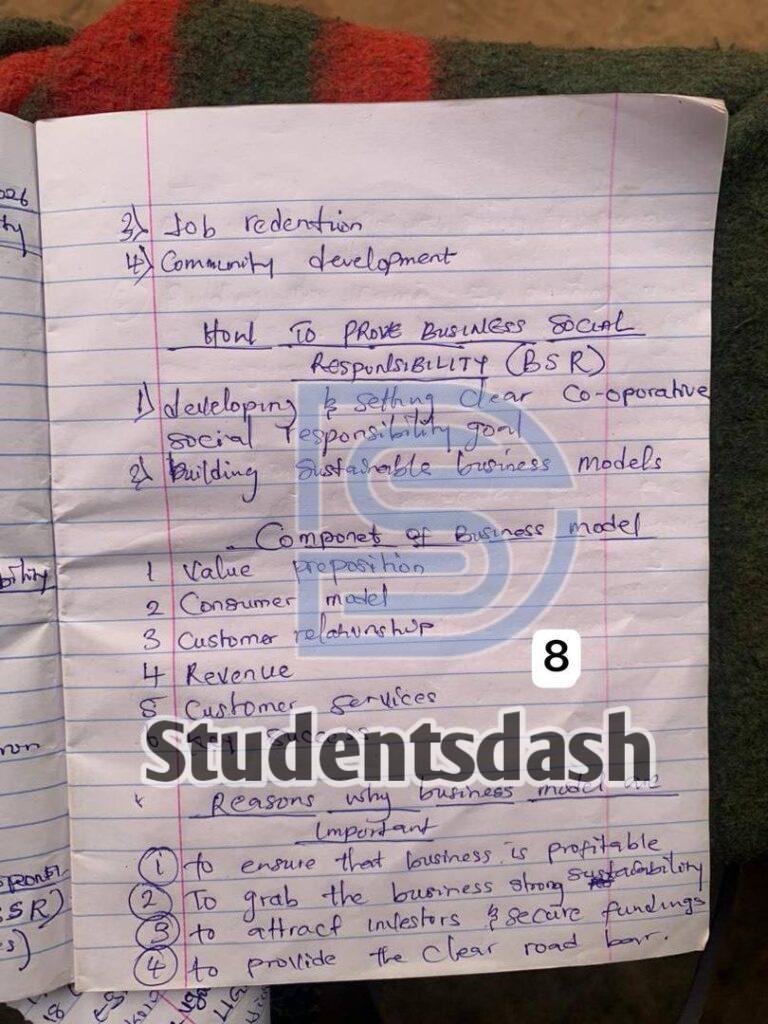 026
ty
3) Job redention
4) Community development
How TO PROVE BUSINESS SOCIAL
RESPONSIBILITY (BSR)
1) developing & setting clear Co-oporative
social responsibility goal
2) Building sustainable business models
Componet of Business model
bility
1 Value preposition
2 Consumer model
3 Customer relationship
8
4 Revenue
5 Customer services
6 Key success
Studentsdash
* Reasons why business model are
Important
1 to ensure that business is profitable
2 To grab the business strong sustainbility
SR)
3 to attract investors & secure fundings
s)
4 to provide the clear road bar.